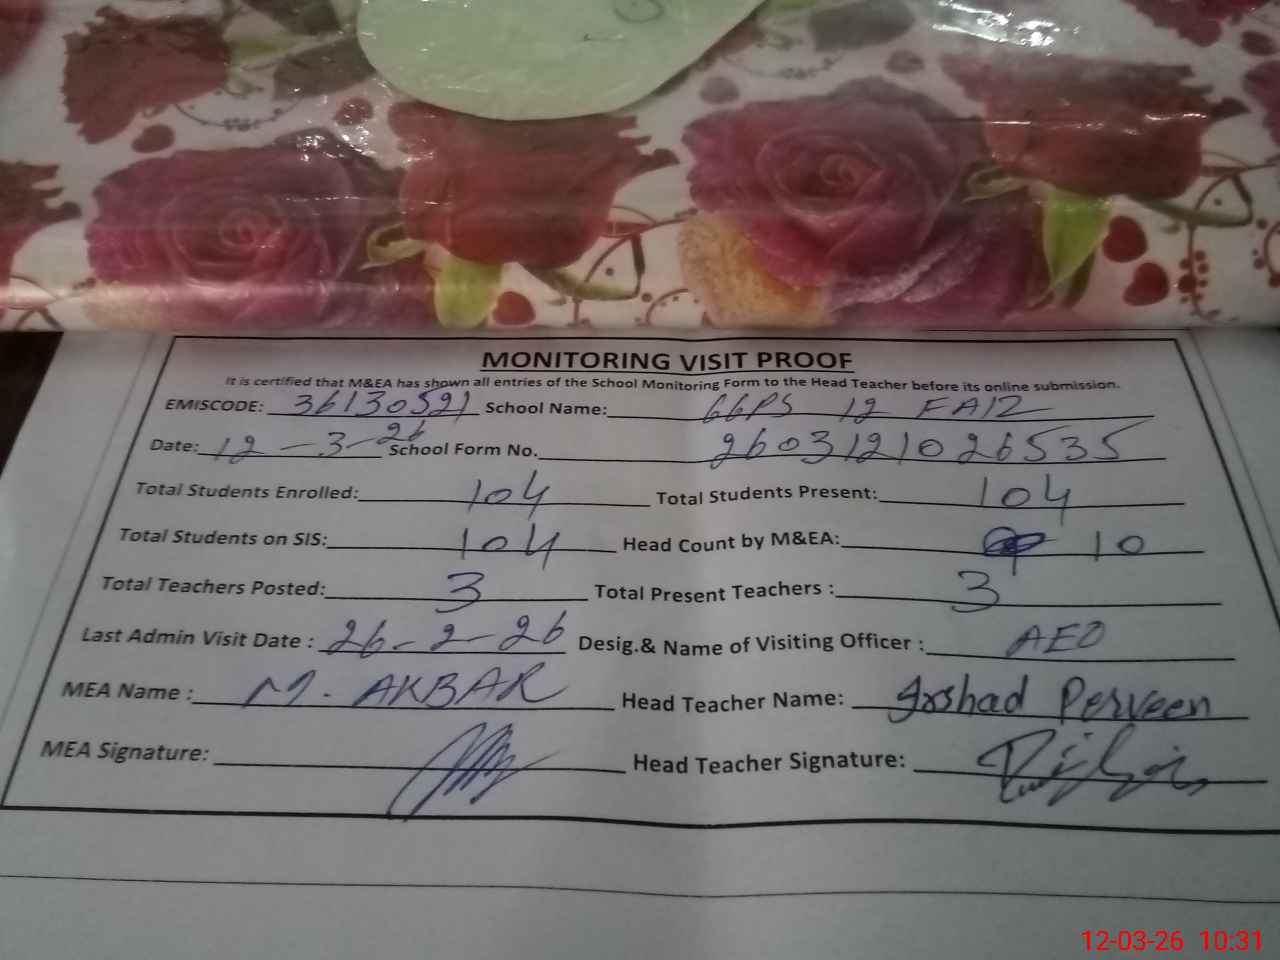 MONITORING VISIT PROOF
It is certified that M&EA has shown all entries of the School Monitoring Form to the Head Teacher before its online submission.
EMISCODE: 36130521 School Name: GGPS 12 FAIZ
Date: 12-3-26 School Form No. 2603121026535
Total Students Enrolled: 104 Total Students Present: 104
Total Students on SIS: 104 Head Count by M&EA: 10
Total Teachers Posted: 3 Total Present Teachers : 3
Last Admin Visit Date : 26-2-26 Desig.& Name of Visiting Officer : AEO
MEA Name : M. AKBAR Head Teacher Name: Irshad Perveen
MEA Signature: Head Teacher Signature:
12-03-26 10:31